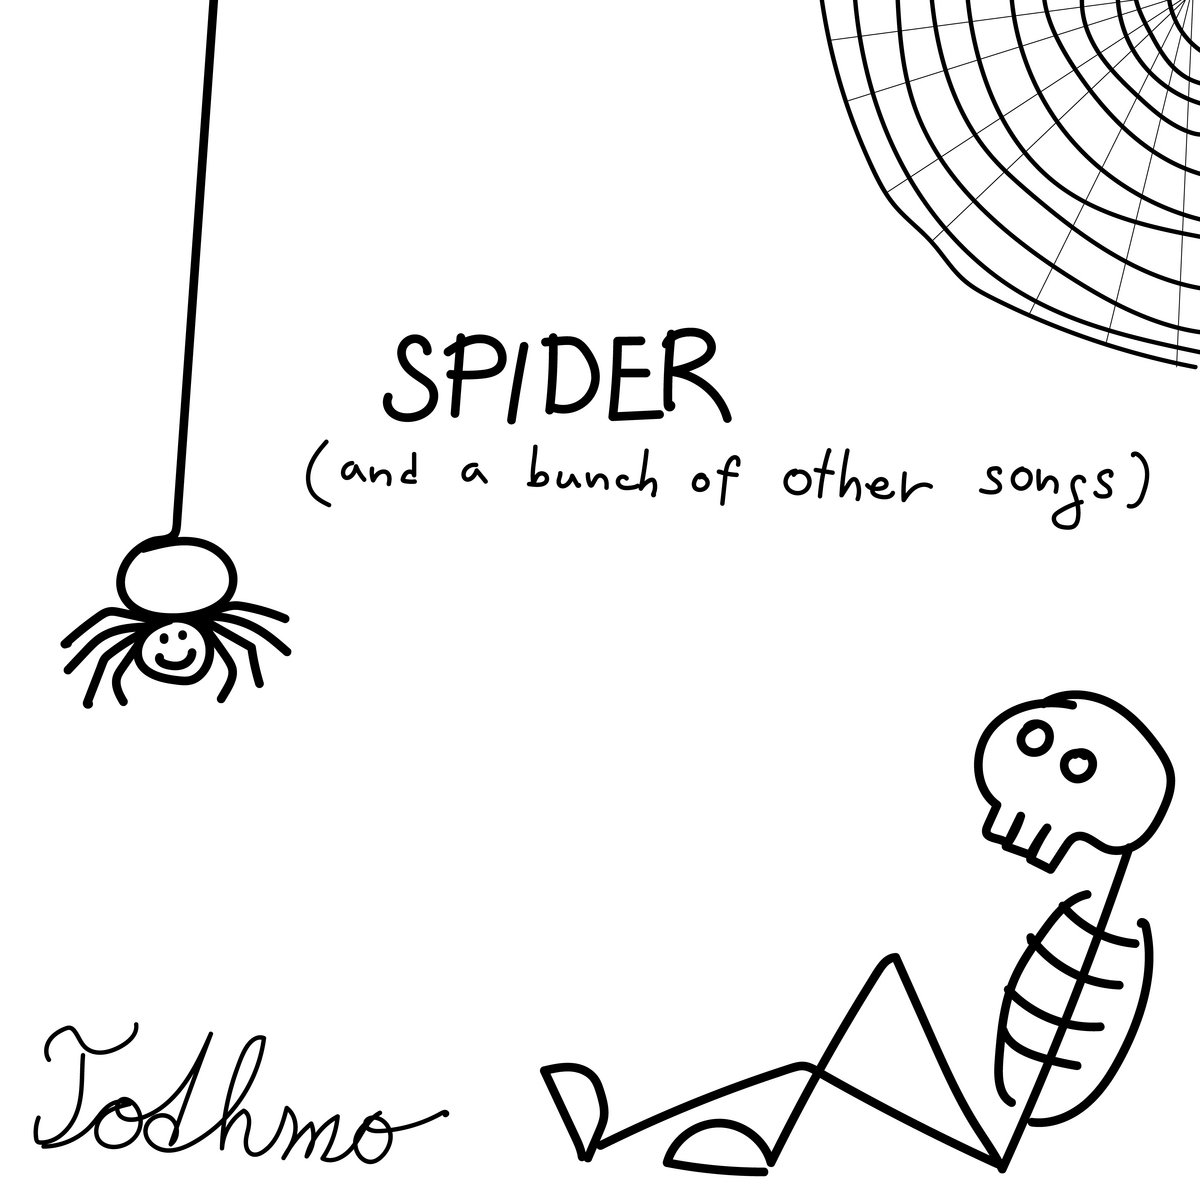 SPIDER
(and a bunch of other songs)
Todhmo